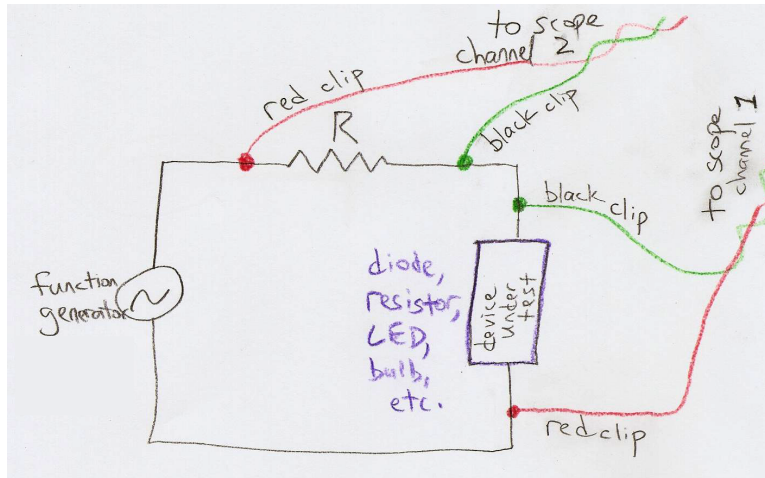 to scope
channel 2
red clip
R
black clip
to scope
channel 1
black clip
function
generator
diode,
resistor,
LED,
bulb,
etc.
device
under
test
red clip